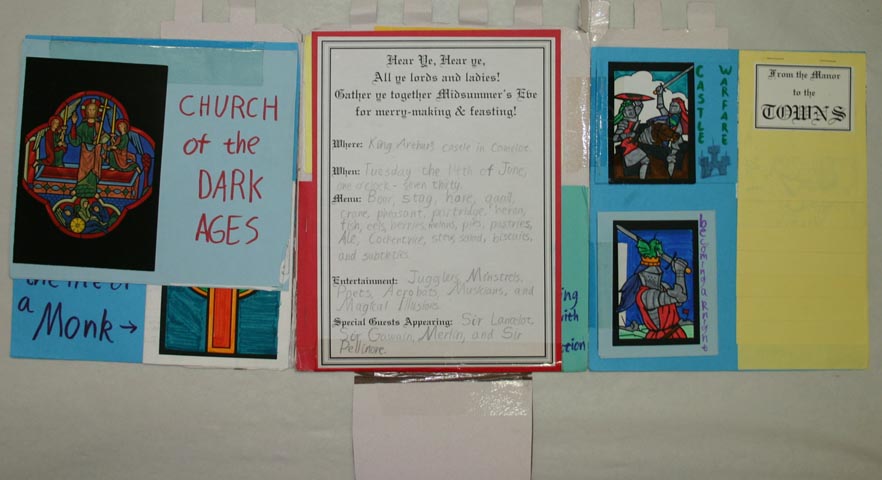 CHURCH
of the
DARK
AGES
the life of
a
Monk →
Hear Ye, Hear ye,
All ye lords and ladies!
Gather ye together Midsummer's Eve
for merry-making & feasting!
Where: King Arthurs castle in Camelot.
When: Tuesday the 14th of June,
one o'clock - seven thirty.
Menu: Boar, stag, hare, quail,
crane, pheasant, partridge, heron,
fish, eels, berries, melons, pies, pastries,
Ale, Cockentrice, stew, salad, biscuits,
and subtleties.
Entertainment: Jugglers, Minstrels,
Poets, Acrobats, Musicians, and
Magical Illusions.
Special Guests Appearing: Sir Lancelot,
Sir Gawain, Merlin, and Sir
Pellinore.
ing
with
ction
CASTLE
WARFARE
becoming a knight
From the Manor
to the
TOWNS